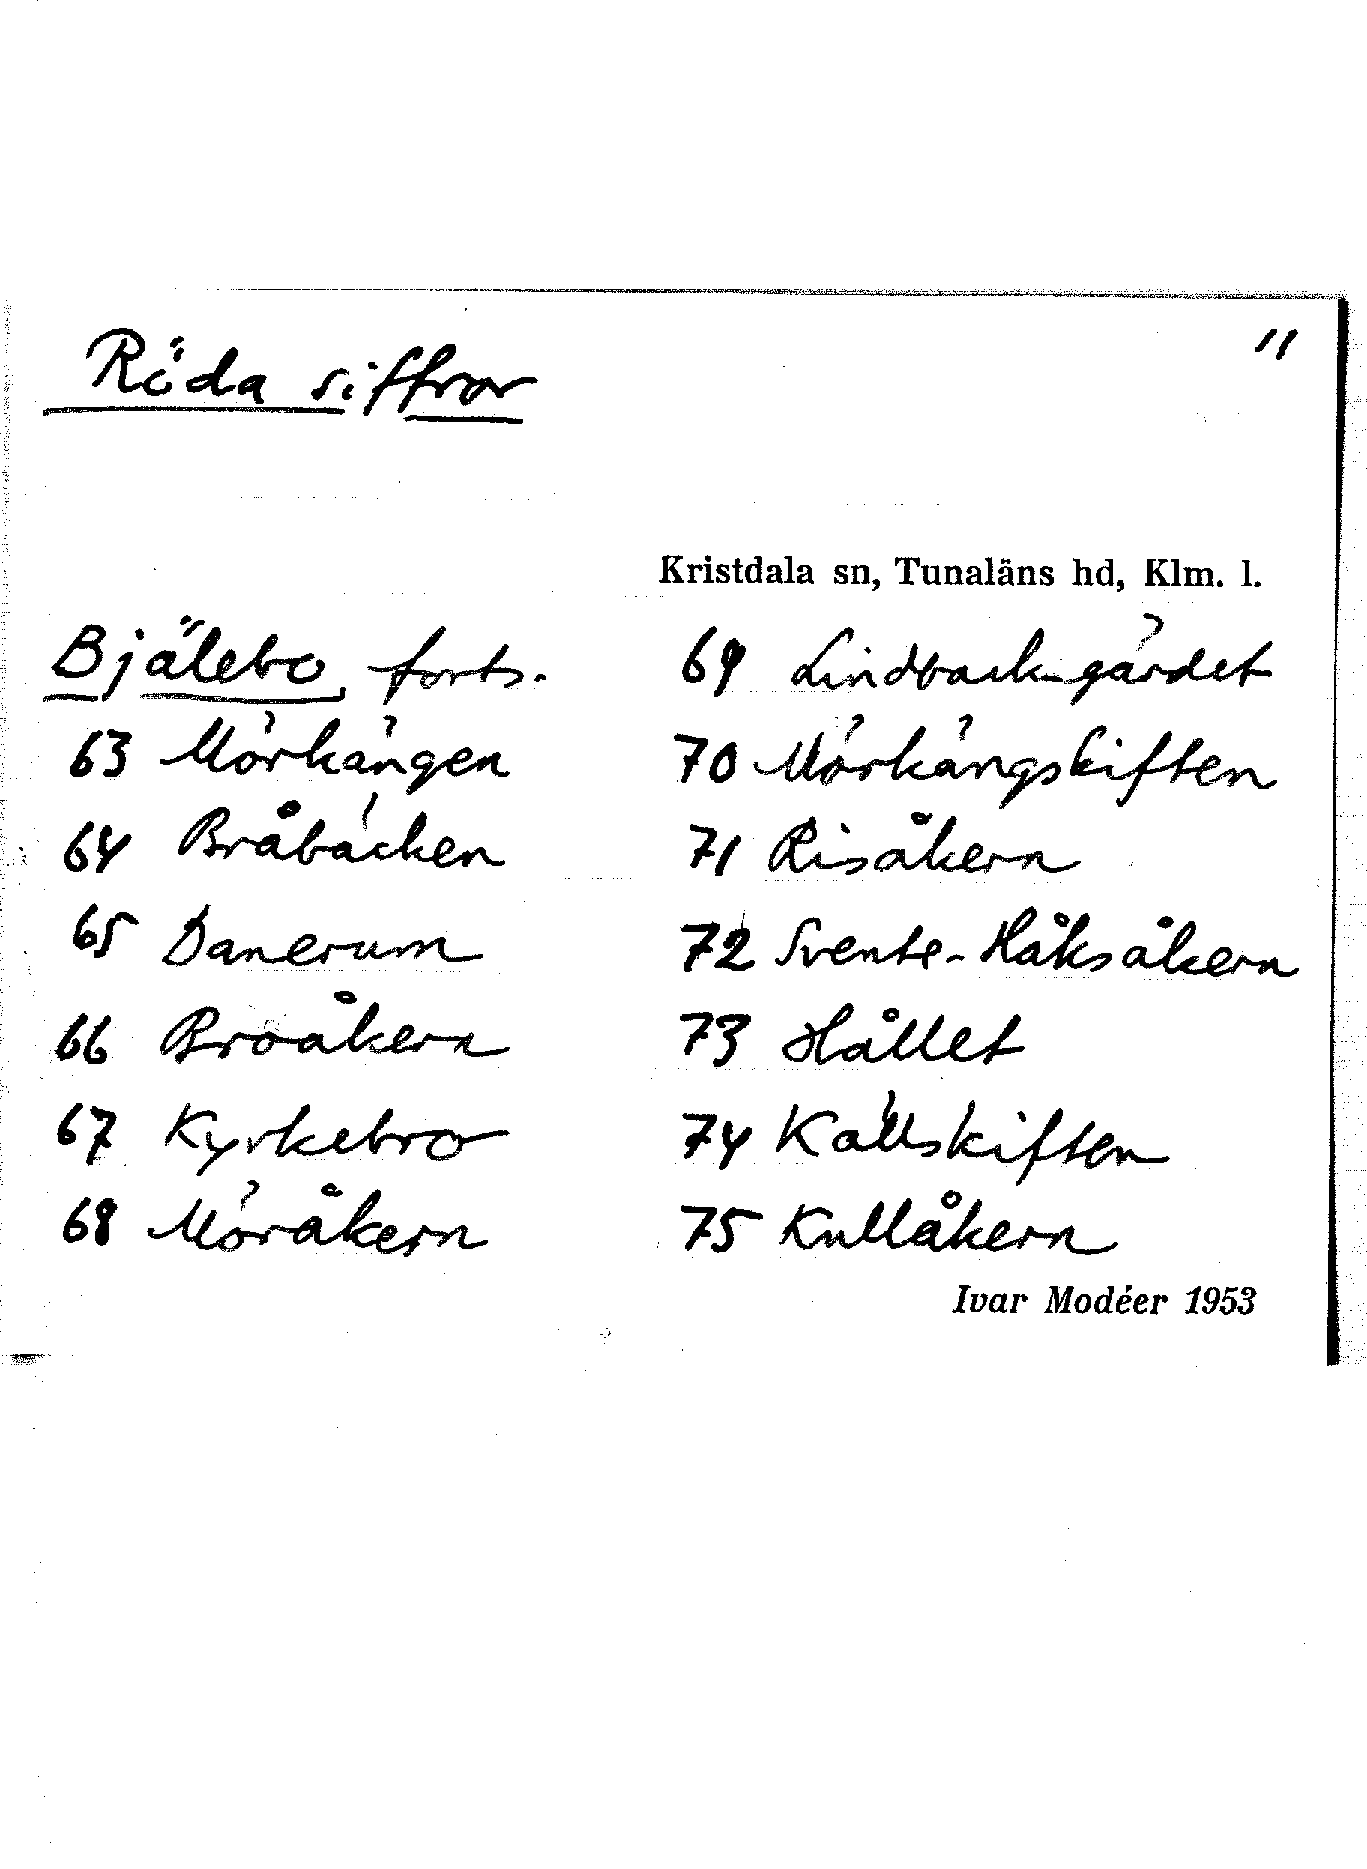 Röda siffror
11
Kristdala sn, Tunaläns hd, Klm. l.
Bjälebo forts.
63 Mörkängen
64 Bråbäcken
65 Danerum
66 Broåkern
67 Kyrkebro
68 Möråkern
69 Lindback-gärdet
70 Mörkängskiften
71 Risåkern
72 Svente-Håksåkern
73 Hållet
74 Källskiften
75 Kullåkern
Ivar Modéer 1953